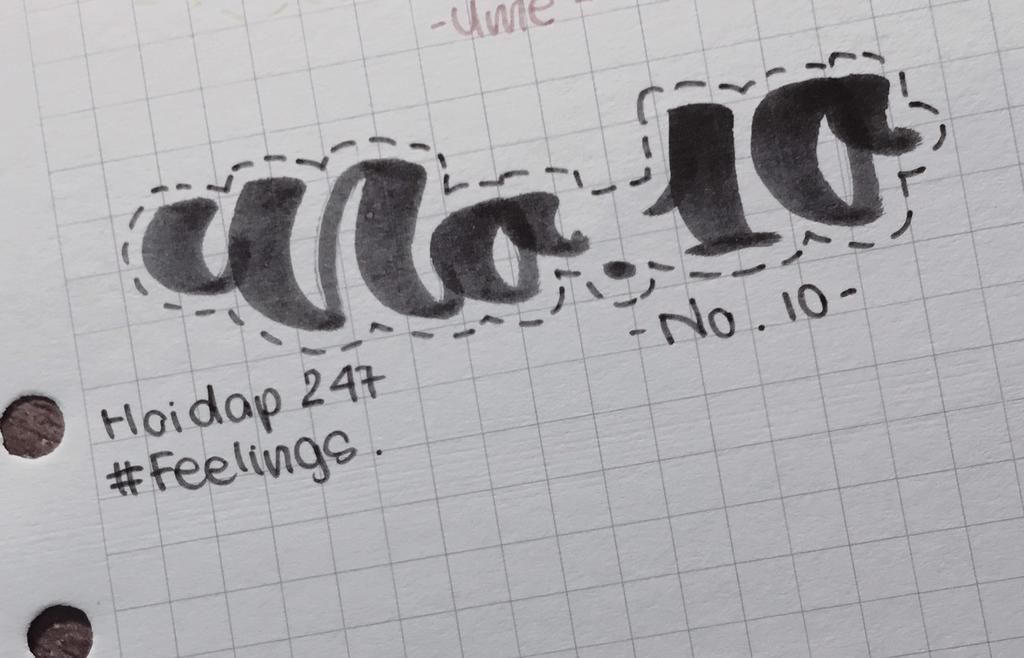 -ume-
No.10
-No.10-
Hoidap 247
#Feelings.